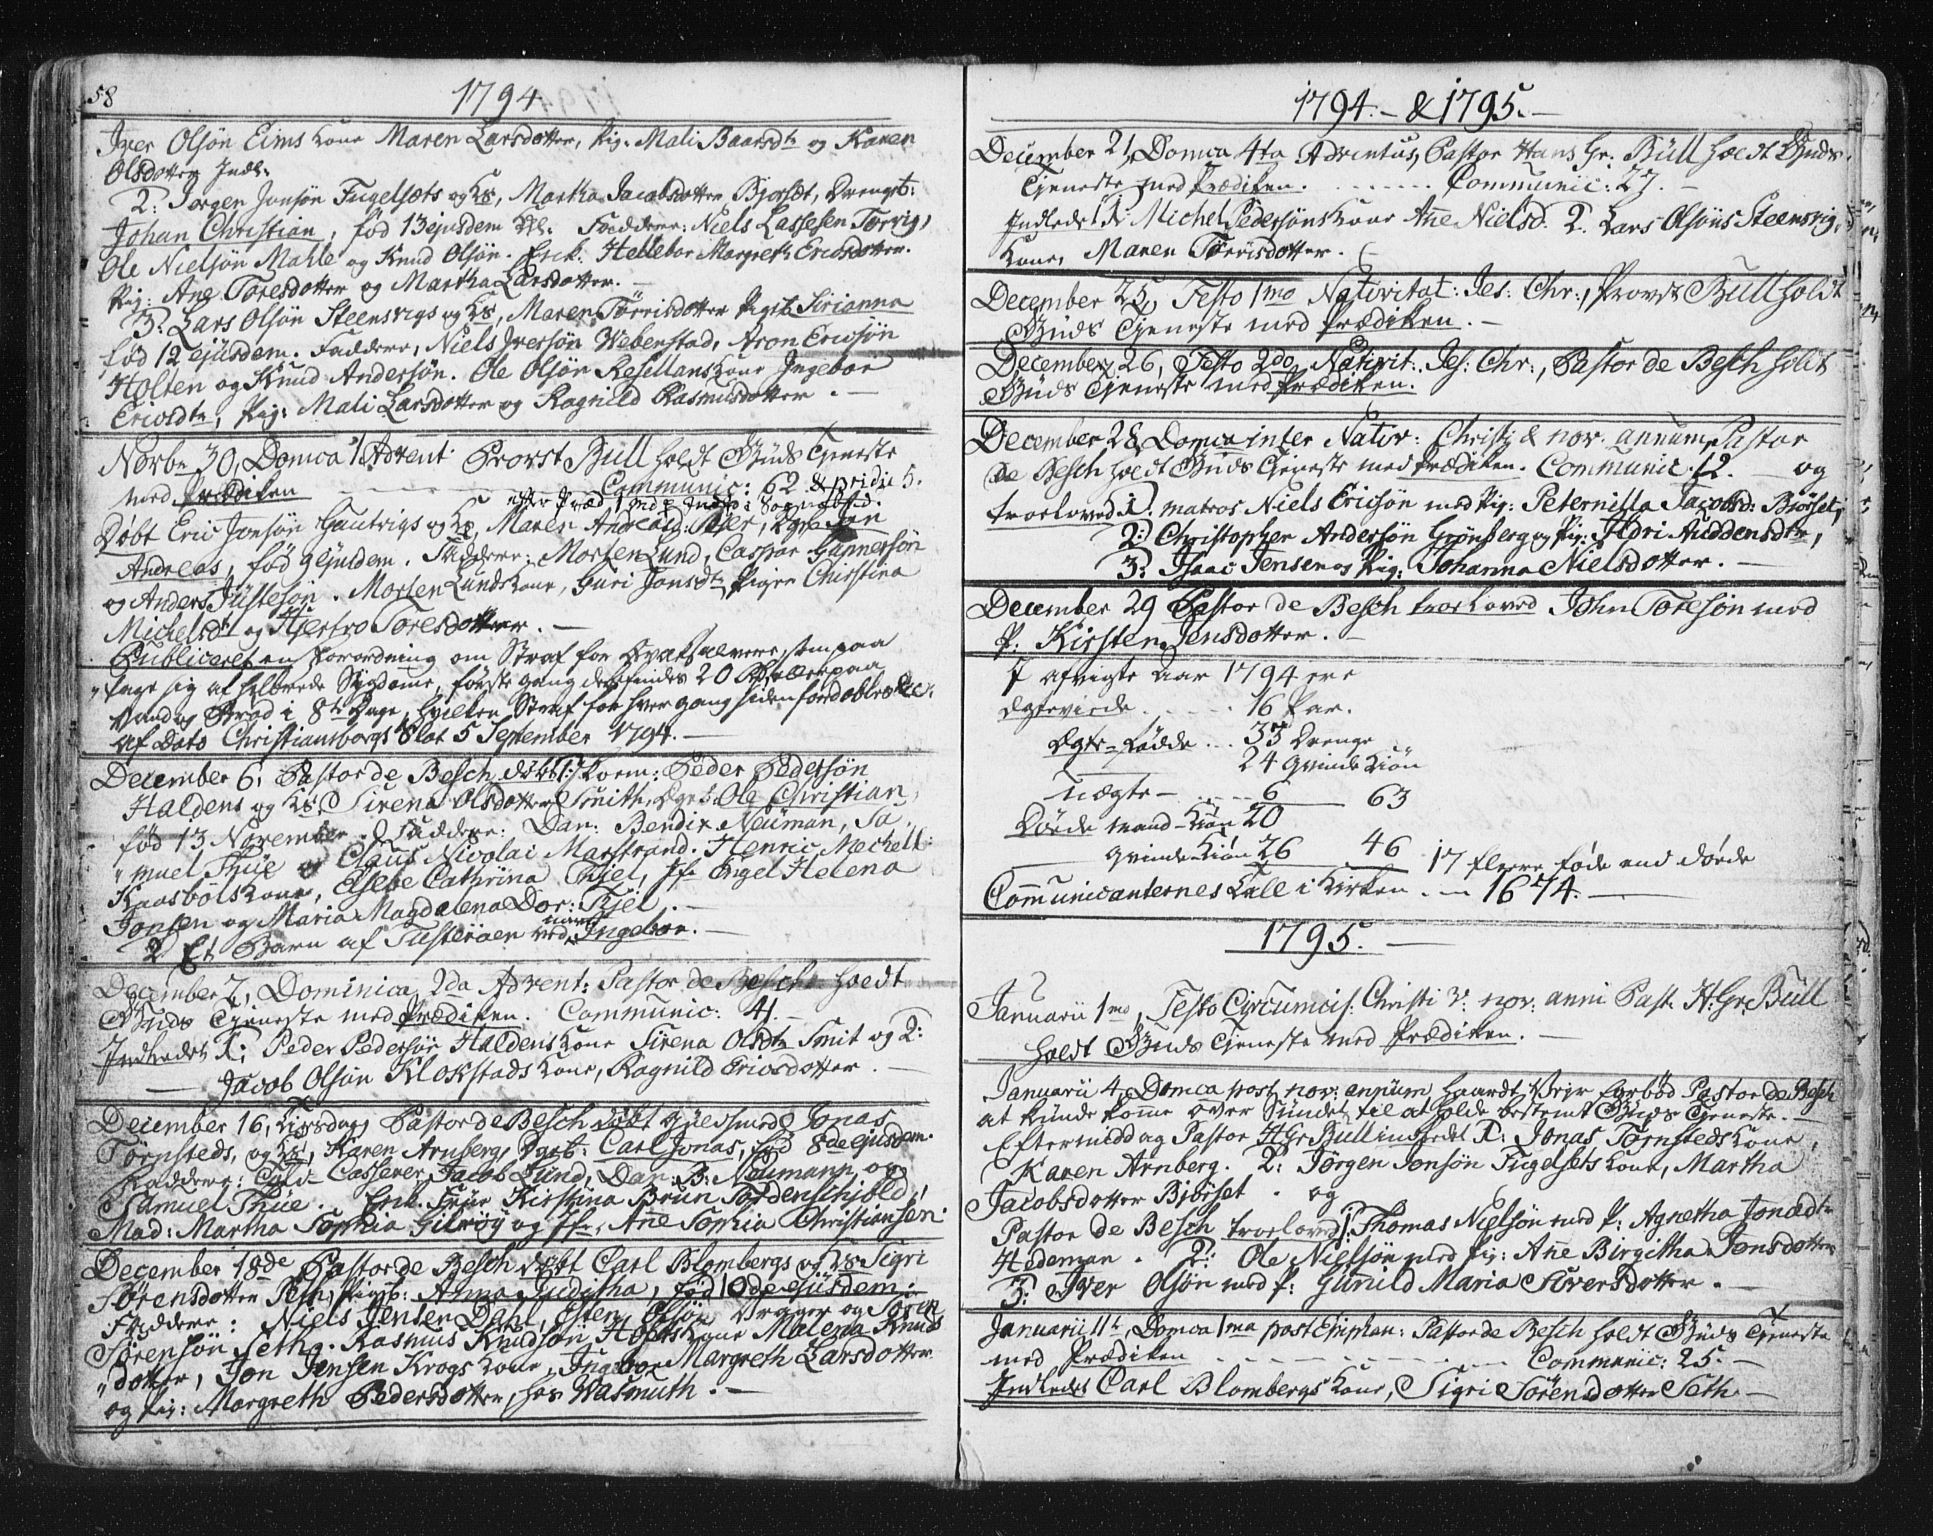 58
1794
Iver Olsøn Eims Kone Maren Larsdotter, Pig: Mali Baarsdtr og Karen
Olsdotter Indl:
2: Jørgen Jonsøn Fugelsæts og Hs, Martha Jacobsdotter Bjørsæt, Drengeb:
Johan Christian, fød 13 ejusdem. Faddere: Niels Lassesen Torvig,
Ole Nielsøn Mahle og Knud Olsøn. Erik Hellebor Margreth Ericsdotter.
Pig: Ane Toresdotter og Martha Larsdotter. —
3: Lars Olsøn Steensvigs og Hs, Maren Tørrisdotter Pigeb Sirianna
fød 12 ejusdem. Faddere, Niels Iversøn Webenstad, Aron Ericsøn
Holten og Knud Andersøn. Ole Olsøn Resellans Kone Ingebor
Ericsdtr, Pig: Mali Larsdotter og Ragnild Rasmusdotter. —
Novbr 30, Domca 1 Advent Provst Bull holdt Guds Tjeneste
med Prædiken Communic: 62 & pridie 5.
efter Præd
Døbt Eric Jonsøn Gautvigs og Hs Maren
Andreas, fød 9 ejusdem. Faddere: Morten Lund, Caspar Gunnersøn
og Anders Justesøn. Morten Lunds Kone, Guri Jonsdtr, Piger Christina
Michelsdtr og Kjerstro Toresdotter. —
Publiceret en Forordning om Straf for Qvaksalvere, som paa
tage sig at helbrede Sygdomme, første gang de findes 20 eller paa
Vand og Brød i 8te Dage, hvilken Straf for hver gang siden fordobles
af Dato Christiansborgs Slot 5 September 1794. —
December 6, Pastor de Besch døbt: Peder Pedersøn
Haldens og Hs Sirena Olsdotter Smith, Dgeb. Ole Christian,
fød 13 November. Faddere: Dan: Bendix Neuman, Sa
muel Thue og Claus Nicolai Marstrand. Henric Mechelt:
Kaasbøls Kone, Elsebe Cathrina Thiel, Jfr Engel Helena
Jonsen og Maria Magdalena Dor: Kjel. —
2 Et Barn af Tusterøen ved navn Ingebor. —
December 7, Dominica 2da Advent: Pastor de Besch holdt
Guds Tjeneste med Prædiken. Communic: 41. —
Indledet 1: Peder Pedersøn Haldens Kone Sirena Olsdtr Smit og 2:
— Jacob Olsøn Klokstads Kone, Ragnild Ericsdotter. —
December 16, Tirsdag Pastor de Besch døbt Guldsmed Jonas
Tørnsteds, og Hs, Karen Arnberg, Dgeb: Carl Jonas, fød 8de ejusdem.
Faddere: Casserer Jacob Lund, Dan: B: Neumann, og
Samuel Thue. Enke Frue Kirstina Brun Tordenschjold,
Mad: Martha Sophia Gilrøy og Jfr Anne Sophia Christiansen.
December 18de Pastor de Besch døbt Carl Blombergs og Hs Sigri
Sørensdotter Seth, Pigeb: Anna Juditha, fød 10de ejusdem.
Faddere: Niels Jensen Dahl, Esten Olsøn Vrager og Søren
Sørensøn Seth. Rasmus Knudsøn Hopens Kone Malena Knuds
dotter, Jon Jensen Krogs Kone, Ingebor Margreth Larsdotter
og Pig: Margreth Pedersdotter, hos Wasmuth. —
1794. — & 1795. —
December 21, Domca 4ta Adventus, Pastor Hans Gr: Bull holdt Guds
Tjeneste med Prædiken. Communic: 27. —
Indledet 1: Michel Pedersøns Kone Anne Nielsd. 2. Lars Olsøns Steensvig,
Kone, Maren Tørrisdotter. —
December 25, Festo 1mo Nativitat: Jes: Chr:, Provst Bull holdt
Guds Tjeneste med Prædiken. —
December 26, Festo 2do Nativit. Jes: Chr:, Pastor de Besch holdt
Guds Tjeneste med Prædiken.
December 28 Domca inter Nativ: Christi & nov: annum, Pastor
de Besch holdt Guds Tjeneste med Prædiken. Communic. 12. og
troeloved 1. matros Niels Ericsøn med Pig: Peternilla Jacobsd: Bjørset,
2: Christopher Andersøn Grønberg og Pig: Auddensdtr,
3: Isaac Jensen og Pig: Johanna Nielsdotter. —
December 29 Pastor de Besch troeloved John Toresøn med
P. Kirsten Jensdotter. —
I afvigte Aar 1794 ere
Egteviede 16 Par.
Egte-Fødde 33 Drenge
24 Qvinde Kiøn
Uægte — 6 63
Døde Mand-Kiøn 20
Qvinde Kiøn 26 46 17 fleere føde end døde
Communicanternes Tall i Kirken — 1674. —
1795. —
Januarii 1mo, Festo Circumcis: Christi v. nov: anni Past: H: Gr: Bull
holdt Guds Tjeneste med Prædiken. —
Januarii 4, Domca post nov: annum haardt Vejr forbød Pastor de Besch
at kunde komme over Sundet til at holde bestemt Guds Tjeneste. —
Eftermiddag Pastor H Gr Bull indledet 1: Jonas Tørnsteds Kone,
Karen Arnberg. 2: Jørgen Jonsøn Fugelsets Kone, Martha
Jacobsdotter Bjørset. og
Pastor de Besch troeloved 1: Thomas Nielsøn med P: Agnetha Jonædtr
Hedeman. 2: Ole Nielsøn med Pig: Anne Birgitha Jonsdotter
3: Iver Olsøn med P: Gunild Maria Siversdotter. —
Januarii 11te, Domca 1ma post Epiphan: Pastor de Besch holdt Guds Tjeneste
med Prædiken Communic: 25. —
Indledet Carl Blombergs Kone, Sigri Sørensdotter Seth —